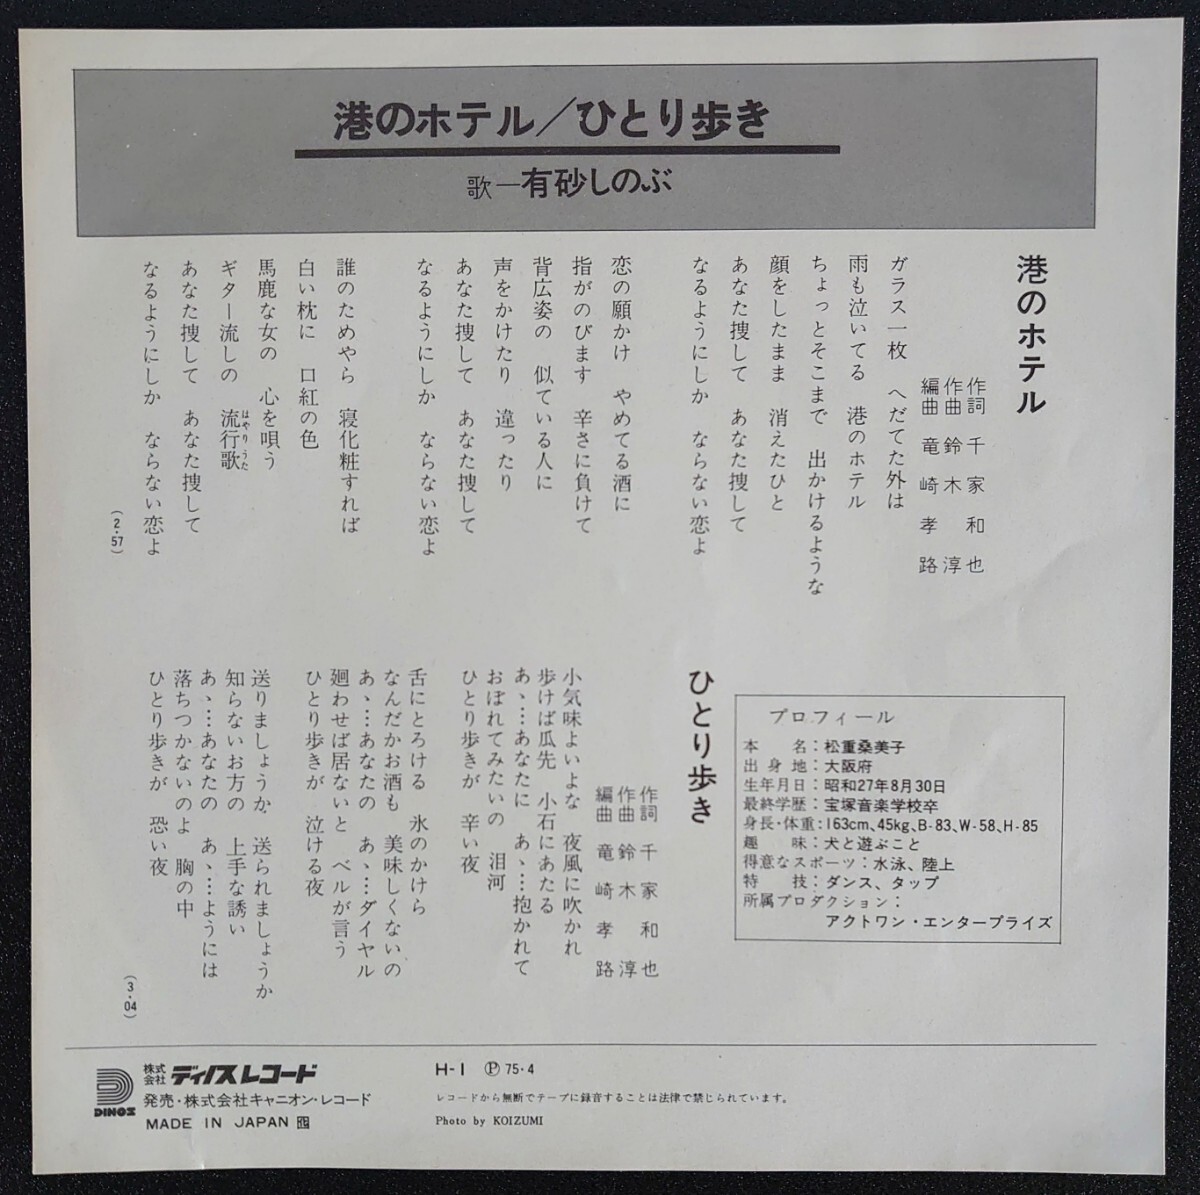 港のホテル／ひとり歩き
歌―有砂しのぶ
港のホテル
作詞 千家和也
作曲 鈴木淳
編曲 竜崎孝路
ガラス一枚 へだてた外は
雨も泣いてる 港のホテル
ちょっとそこまで 出かけるような
顔をしたまま 消えたひと
あなた捜して あなた捜して
なるようにしか ならない恋よ
恋の願かけ やめてる酒に
指がのびます 辛さに負けて
背広姿の 似ている人に
声をかけたり 違ったり
あなた捜して あなた捜して
なるようにしか ならない恋よ
誰のためやら 寝化粧すれば
白い枕に 口紅の色
馬鹿な女の 心を唄う
ギター流しの 流行歌
はやりうた
あなた捜して あなた捜して
なるようにしか ならない恋よ
(2・57)
プロフィール
本名：松重桑美子
出身地：大阪府
生年月日：昭和27年8月30日
最終学歴：宝塚音楽学校卒
身長・体重：163cm、45kg、B-83、W-58、H-85
趣味：犬と遊ぶこと
得意なスポーツ：水泳、陸上
特技：ダンス、タップ
所属プロダクション：
アクトワン・エンタープライズ
ひとり歩き
作詞 千家和也
作曲 鈴木淳
編曲 竜崎孝路
小気味よいよな 夜風に吹かれ
歩けば瓜先 小石にあたる
あゝ…あなたに あゝ…抱かれて
おぼれてみたいの 泪河
ひとり歩きが 辛い夜
舌にとろける 氷のかけら
なんだかお酒も 美味しくないの
あゝ…あなたの あゝ…ダイヤル
廻わせば居ないと ベルが言う
ひとり歩きが 泣ける夜
送りましょうか 送られましょうか
知らないお方の 上手な誘い
あゝ…あなたの あゝ…ようには
落ちつかないのよ 胸の中
ひとり歩きが 恐い夜
(3・04)
DINOS
株式会社 ディノスレコード
発売・株式会社キャニオン・レコード
MADE IN JAPAN
H-1 Ⓟ 75・4
レコードから無断でテープに録音することは法律で禁じられています。
Photo by KOIZUMI